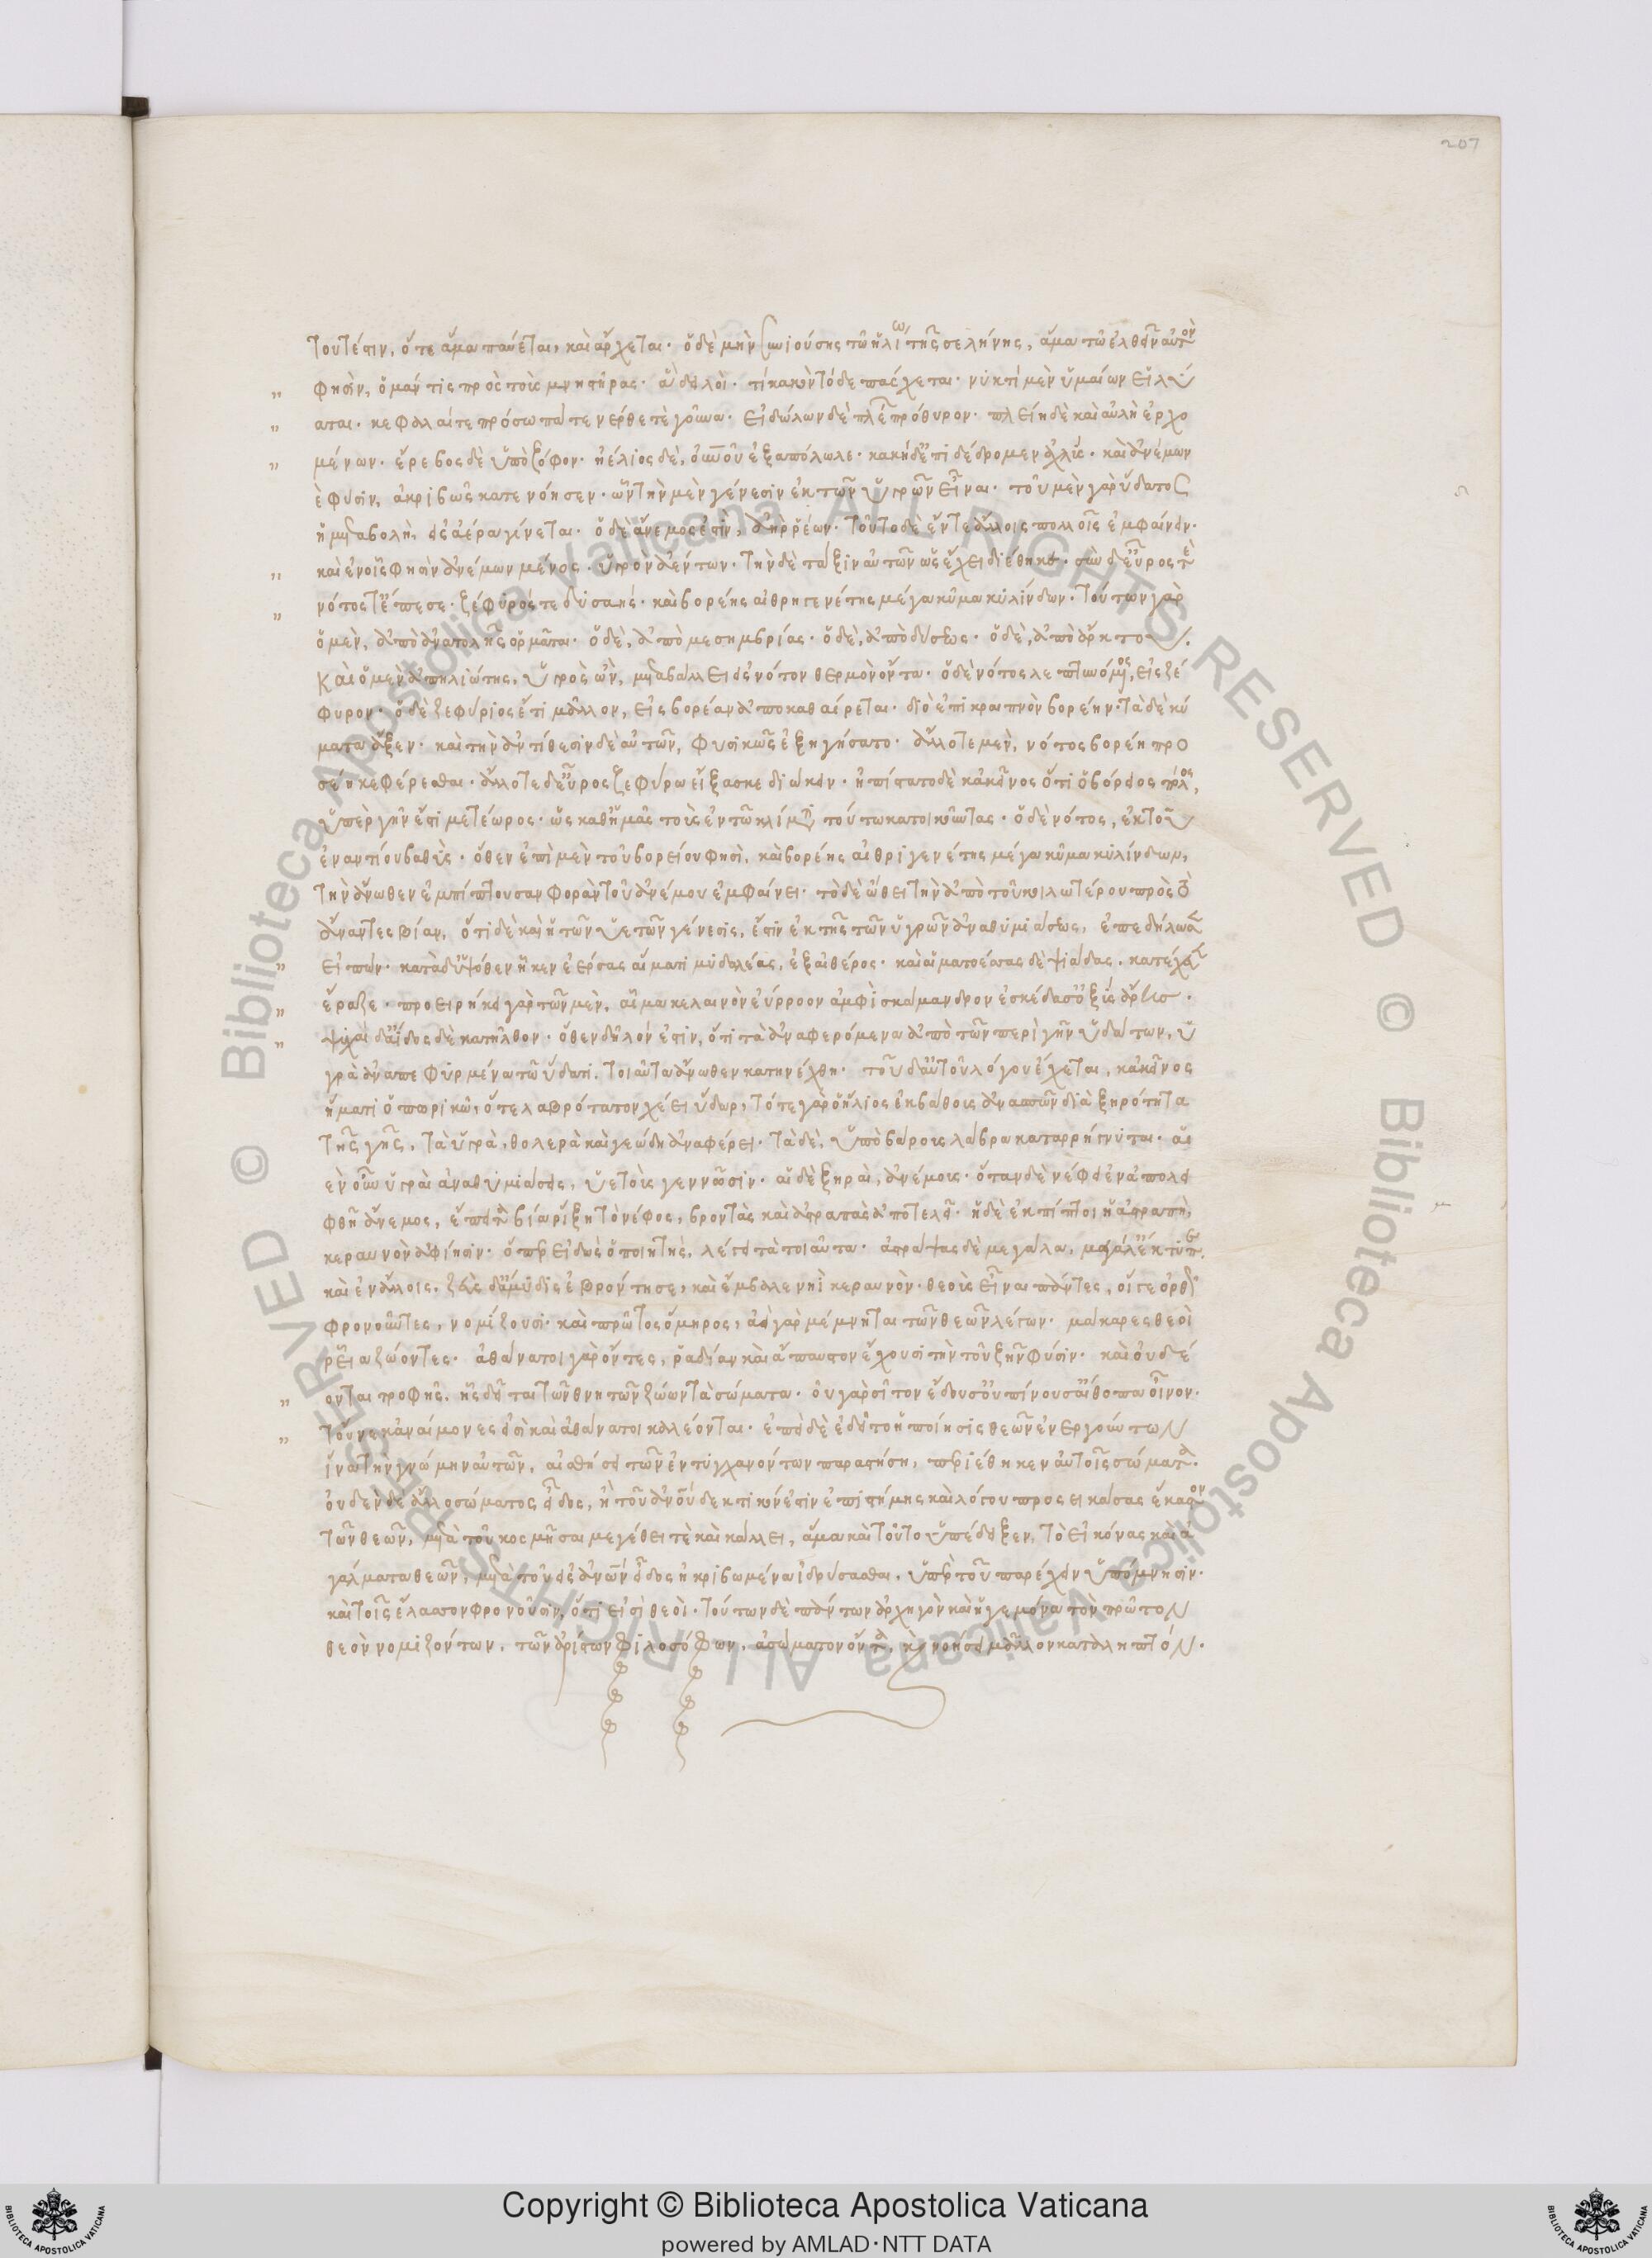 207
τουτέστιν, ὅτε ἅμα παύεται, καὶ ἄρχεται. ὁ δὲ μὴν συνιούσης τῶ ἡλίω τῆς σελήνης, ἅμα τῶ ἐλθεῖν αὐτὸν
φησὶν, ὁ μάντις πρὸς τοὺς μνηστῆρας. ἆ δειλοὶ. τί κακὸν τόδε πάσχετε. νυκτὶ μὲν ὑμαίων εἰλύ
αται. κεφαλαί τε πρόσωπά τε νέρθε τὲ γοῦνα. εἰδώλων δὲ πλεῖον πρόθυρον. πλείη δὲ καὶ αὐλὴ ἐρχο
μένων. ἔρεβος δὲ ὑπὸ ζόφον. ἠέλιος δὲ, οὐρανοῦ ἐξαπόλωλε. κακὴ δ' ἐπιδέδρομεν ἀχλύς. καὶ ἀνέμων
ἐφύσιν, ἀκριβῶς κατενόησεν. ὧν τὴν μὲν γένεσιν ἐκ τῶν ὑγρῶν εἶναι. τοῦ μὲν γὰρ ὕδατος
ἡ μεταβολὴ, εἰς ἀέρα γίνεται. ὁ δὲ ἄνεμος ἐστὶν, ἀὴρ ῥέων. τοῦτο δὲ ἔν τε ἄλλοις πολλοῖς ἐμφαίνει.
καὶ ἐν οἷς φησὶν ἀνέμων μένος. ὑγρὸν ἀέντων. τὴν δὲ τάξιν αὐτῶν ὡς ἔχει διέθηκε. σὺν δ' εὖρος τὲ
νότος τ' ἔπεσε. ζέφυρός τε δυσαής. καὶ βορέης αἰθρηγενέτης μέγα κῦμα κυλίνδων. τούτων γὰρ
ὁ μὲν, ἀπὸ ἀνατολῆς ὁρμᾶται. ὁ δὲ, ἀπὸ μεσημβρίας. ὁ δὲ, ἀπὸ δύσεως. ὁ δὲ, ἀπὸ ἄρκτου.
Καὶ ὁ μὲν ἀπηλιώτης, ὑγρὸς ὢν, μεταβάλλει εἰς νότον θερμὸν ὄντα. ὁ δὲ νότος λεπτυνόμενος, εἰς ζέ
φυρον. ὁ δὲ ζεφύριος ἔτι μᾶλλον, εἰς βορέαν ἀποκαθαίρεται. διὸ ἐπὶ κραιπνὸν βορέην. τὰ δὲ κύ
ματα ἄξεν. καὶ τὴν ἀντίθεσιν δὲ αὐτῶν, φυσικῶς ἐξηγήσατο. ἄλλοτε μὲν, νότος βορέη προ
σέηκε φέρεσθαι. ἄλλοτε δ' εὖρος ζεφύρω εἴξασκε διώκειν. ἠπίστατο δὲ κἀκεῖνος ὅτι ὁ βόρειος πόλος,
ὑπὲρ γῆν ἐστι μετέωρος. ὡς καθ' ἡμᾶς τοὺς ἐν τῶ κλίματι τούτω κατοικοῦντας. ὁ δὲ νότος, ἐκ τοῦ
ἐναντίου βαθὺς. ὅθεν ἐπὶ μὲν τοῦ βορείου φησὶ, καὶ βορέης αἰθριγενέτης μέγα κῦμα κυλίνδων,
τὴν ἄνωθεν ἐμπίπτουσαν φορὰν τοῦ ἀνέμου ἐμφαίνει. τὸ δὲ ὤθει τὴν ἀπὸ τοῦ κοιλωτέρου πρὸς τὸ
ἄναντες βίαν, ὅτι δὲ καὶ ἡ τῶν ὑετῶν γένεσις, ἐστὶν ἐκ τῆς τῶν ὑγρῶν ἀναθυμιάσεως, ἐπεδήλωσεν
εἰπών. κατὰ δ' ὑψόθεν ἧκεν ἐέρσας αἵματι μυδαλέας, ἐξ αἰθέρος. καὶ αἱματοέσσας δὲ ψιάδας. κατέχευεν
ἔραζε. προείρηκε γὰρ τῶν μὲν, αἷμα κελαινὸν ἐύρροον ἀμφὶ σκάμανδρον ἐσκέδασ' ὀξὺς ἄρης.
ψυχαὶ δ' ἄϊδος δὲ κατῆλθον. ὅθεν δῆλόν ἐστιν, ὅτι τὰ ἀναφερόμενα ἀπὸ τῶν περὶ γῆν ὑδάτων, ὑ
γρὰ ἀναπεφυρμένα τῶ ὕδατι. τοιαῦτα ἄνωθεν κατηνέχθη. τοῦ δ' αὐτοῦ λόγου ἔχεται, κἀκεῖνος
ἤματι ὀπωρικῶ, ὅτε λαβρότατον χέει ὕδωρ, τότε γὰρ ὁ ἥλιος ἐκ βάθους ἀνασπῶν διὰ ξηρότητα
τῆς γῆς, τὰ ὑγρὰ, θολερὰ καὶ γεώδη ἀναφέρει. τὰ δὲ, ὑπὸ βάρους λάβρα καταρρήγνυται. αἱ
ἐν οὖν ὑγραὶ ἀναθυμιάσεις, ὑετοὺς γεννῶσιν. αἱ δὲ ξηραὶ, ἀνέμους. ὅταν δὲ νέφει ἐναπολει
φθῆ ἄνεμος, ἔπειτα βία ῥήξη τὸ νέφος, βροντὰς καὶ ἀστραπὰς ἀποτελεῖ. ἡ δὲ ἐκπίπτοι ἡ ἀστραπὴ,
κεραυνὸν ἀφίησιν. ὅπερ εἰδὼς ὁ ποιητὴς, λέγει τὰ τοιαῦτα. ἀστράψας δὲ μεγάλα, μεγάλ' ἔκτυπε.
καὶ ἐν ἄλλοις. ζεὺς δ' ἄμυδις ἐβρόντησε, καὶ ἔμβαλε νηῒ κεραυνὸν. θεοὺς εἶναι πάντες, οἵ γε ὀρθῶς
φρονοῦντες, νομίζουσι. καὶ πρῶτος ὅμηρος, ἀεὶ γὰρ μέμνηται τῶν θεῶν λέγων. μάκαρες θεοὶ
ῥεῖα ζώοντες. ἀθάνατοι γὰρ ὄντες, ῥαδίαν καὶ ἄπαυστον ἔχουσι τὴν τοῦ ζῆν φύσιν. καὶ οὐ δέ
ονται τροφῆς. ἧς δεῖται τῶν θνητῶν ζώων τὰ σώματα. οὐ γὰρ σῖτον ἔδουσ' οὐ πίνουσ' αἴθοπα οἶνον.
τοὔνεκ' ἀναίμονες εἰσὶ καὶ ἀθάνατοι καλέονται. ἐπεὶ δὲ ἐδεῖτο ἡ ποίησις θεῶν ἐνεργούντων
ἵνα τὴν γνώμην αὐτῶν, αἰσθήσει τῶν ἐντυγχανόντων παραστήση, περιέθηκεν αὐτοῖς σώματα.
οὐδὲν δὲ ἄλλο σώματος εἶδος, ἢ τοῦ ἀνθρώπου δεκτικόν ἐστιν ἐπιστήμης καὶ λόγου προσεικάσας ἕκαστον
τῶν θεῶν, μετὰ τοῦ κοσμῆσαι μεγέθει τὲ καὶ κάλλει, ἅμα καὶ τοῦτο ὑπέδειξεν, τὸ εἰκόνας καὶ ἀ
γάλματα θεῶν, μετὰ τοῦ εἰς ἀνθρώπων εἶδος ἠκριβωμένα ἱδρύσασθαι. ὑπὲρ τοῦ παρέχειν ὑπόμνησιν.
καὶ τοῖς ἔλασσον φρονοῦσιν, ὅτι εἰσὶ θεοὶ. τούτων δὲ πάντων ἀρχηγὸν καὶ ἡγεμόνα τὸν πρῶτον
θεὸν νομιζόντων, τῶν ἀρίστων φιλοσόφων, ἀσώματον ὄντα, καὶ νοήσει μᾶλλον καταληπτόν.
Copyright © Biblioteca Apostolica Vaticana
powered by AMLAD·NTT DATA